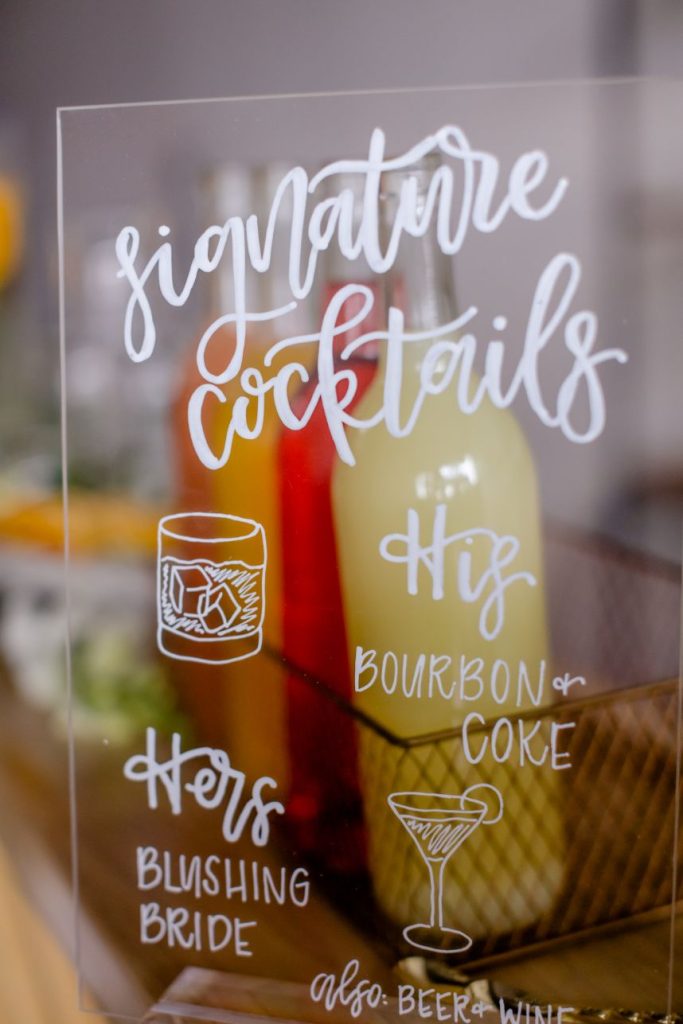 signature
cocktails
His
BOURBON +
COKE
Hers
BLUSHING
BRIDE
also: BEER + WINE